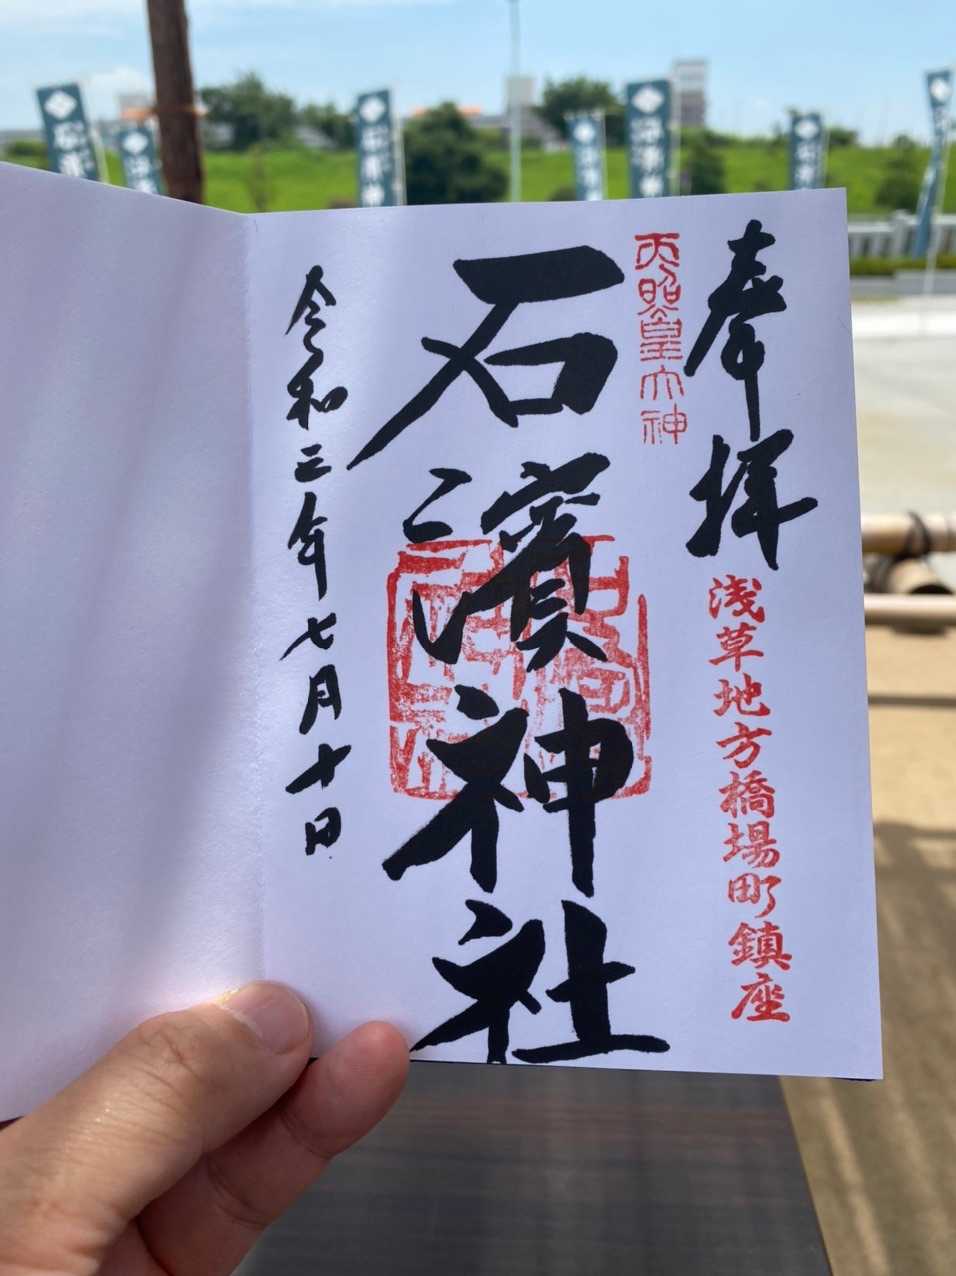 奉拝
浅草地方橋場町鎮座
天照皇大神
石濱神社
令和三年七月十日